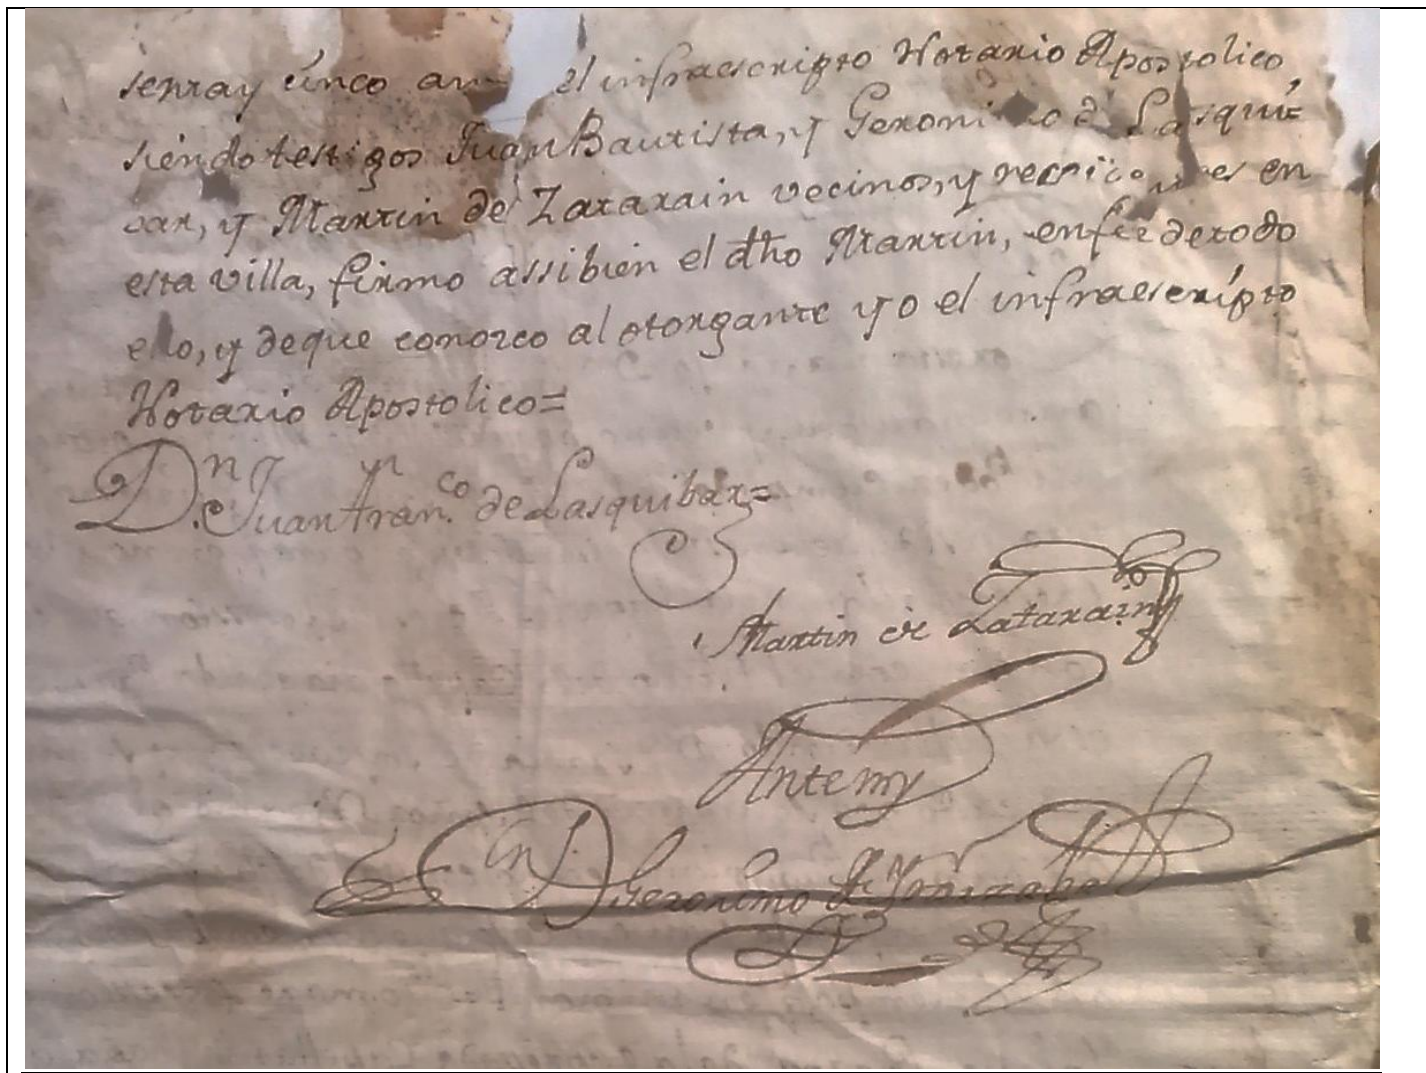 sentay cinco an el infraescripto Notario Apostolico,
siendo testigos Juan Bautista, y Geronimo de Lasqui=
bar, y Martin de Zatarain vecinos, y recidentes en
esta villa, firmo assibien el dho Martin, enfée detodo
ello, y deque conozco al otorgante yo el infraescripto
Notario Apostolico=
Dn. Juan Franco. de Lasquibar=
Martin de Zatarain
Antemy
Dn Geronimo de